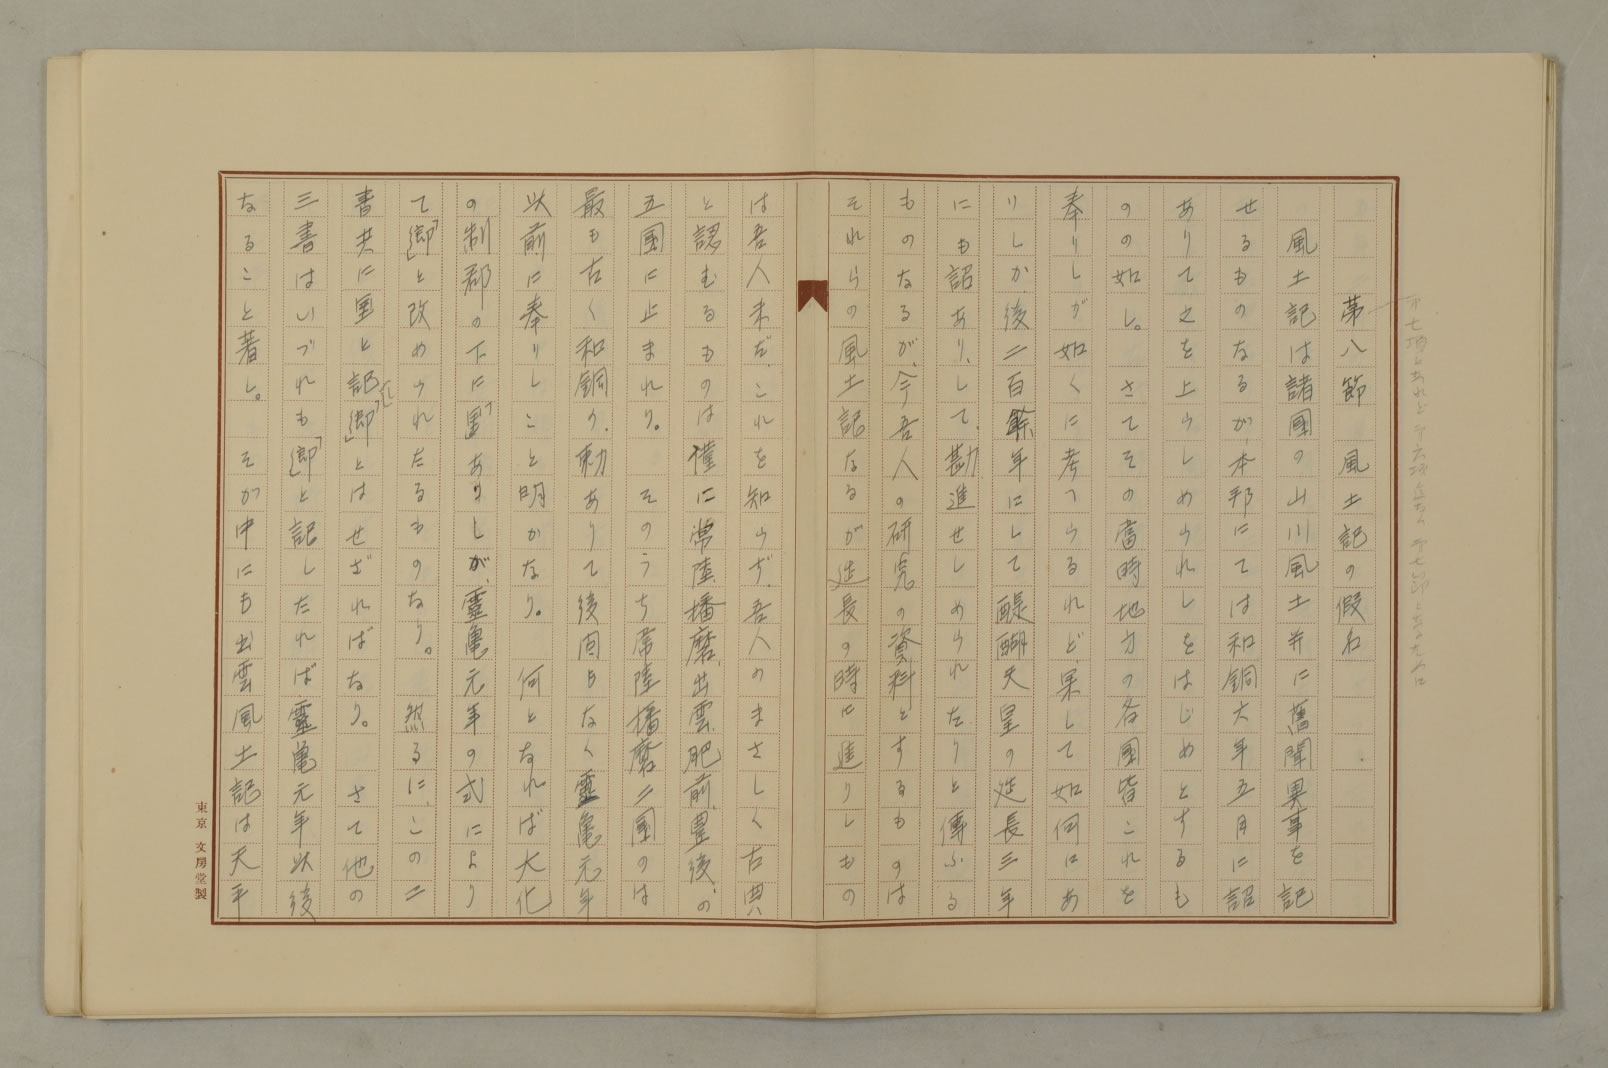 第八節　風土記の假名
風土記は諸國の山川風土并に舊聞異事を記
せるものなるが、本邦にては和銅六年五月に詔
ありて之を上らしめられしをはじめとするも
のの如し。　さてその當時地方の各國皆これを
奉りしが如くに考へらるれど、果して如何にあ
りしか、後二百餘年にして醍醐天皇の延長三年
にも詔あり、して、勘進せしめられたりと傳ふる
ものなるが、今吾人の研究の資料とするものは
それらの風土記なるが延長の時に進りしもの
は吾人未だ、これを知らず、吾人のまさしく古典
と認むるものは僅に常陸、播磨、出雲、肥前、豊後、の
五國に止まれり。　そのうち常陸播磨二國のは
最も古く和銅の、勅ありて後固日なく靈亀元年
以前に奉りしこと明かなり。　何となれば大化
の制郡の下に「里」ありしが、靈亀元年の式により
て「郷」と改められたるものなり。　然るに、この二
書共に里と記し「郷」とはせざればなり。　さて他の
三書はいづれも「郷」と記したれば靈亀元年以後
なること著し。　そが中にも出雲風土記は天平
東京 文房堂製